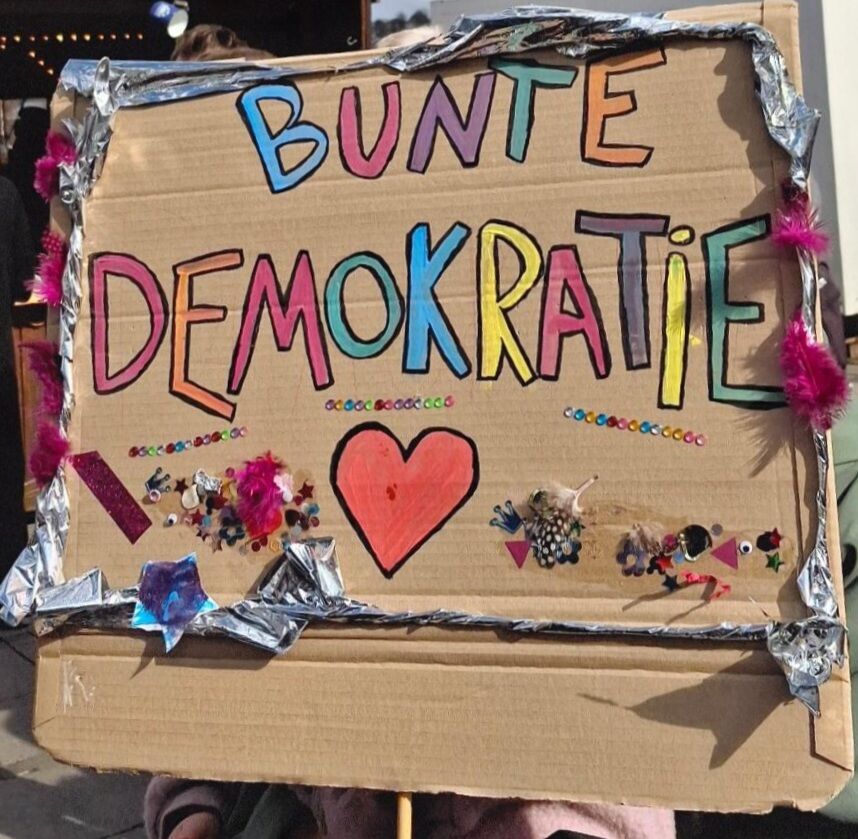 BUNTE
DEMOKRATiE